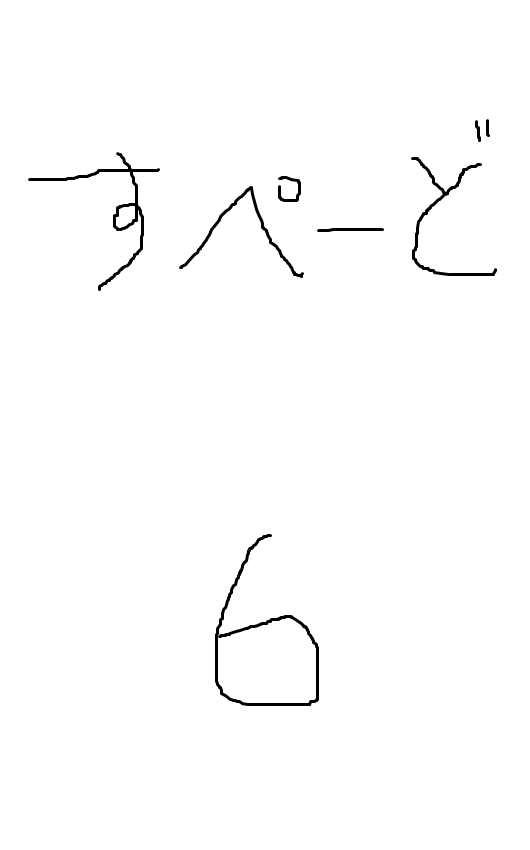 すぺーど
6